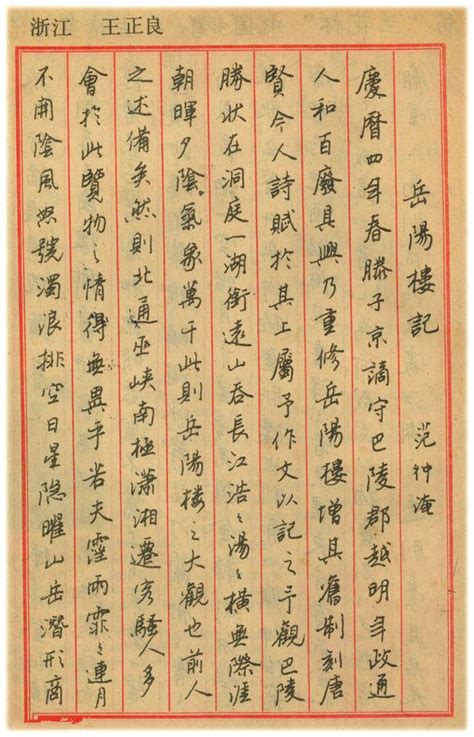 浙江 王正良
岳陽樓記 范仲淹
慶曆四年春滕子京謫守巴陵郡越明年政通
人和百廢具興乃重修岳陽樓增其舊制刻唐
賢今人詩賦於其上屬予作文以記之予觀巴陵
勝狀在洞庭一湖銜遠山吞長江浩〻湯〻橫無際涯
朝暉夕陰氣象萬千此則岳陽樓之大觀也前人
之述備矣然則北通巫峽南極瀟湘遷客騷人多
會於此覽物之情得無異乎若夫霪雨霏〻連月
不開陰風怒號濁浪排空日星隱曜山岳潛形商